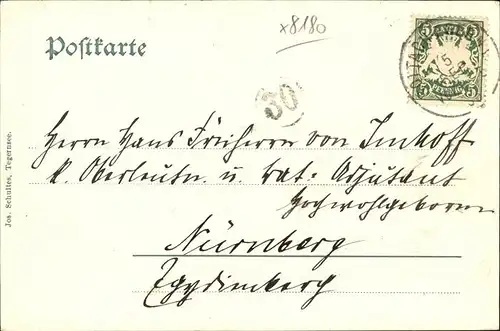 x8180
Postkarte
BAYERN
5 5
PFENNIG
30
Herrn Hans Freiherrn von Imhoff
k. Oberleutn. u. Bat: Adjutant
Hochwohlgeboren
Nürnberg
Egydienberg
Jos. Schultes, Tegernsee.